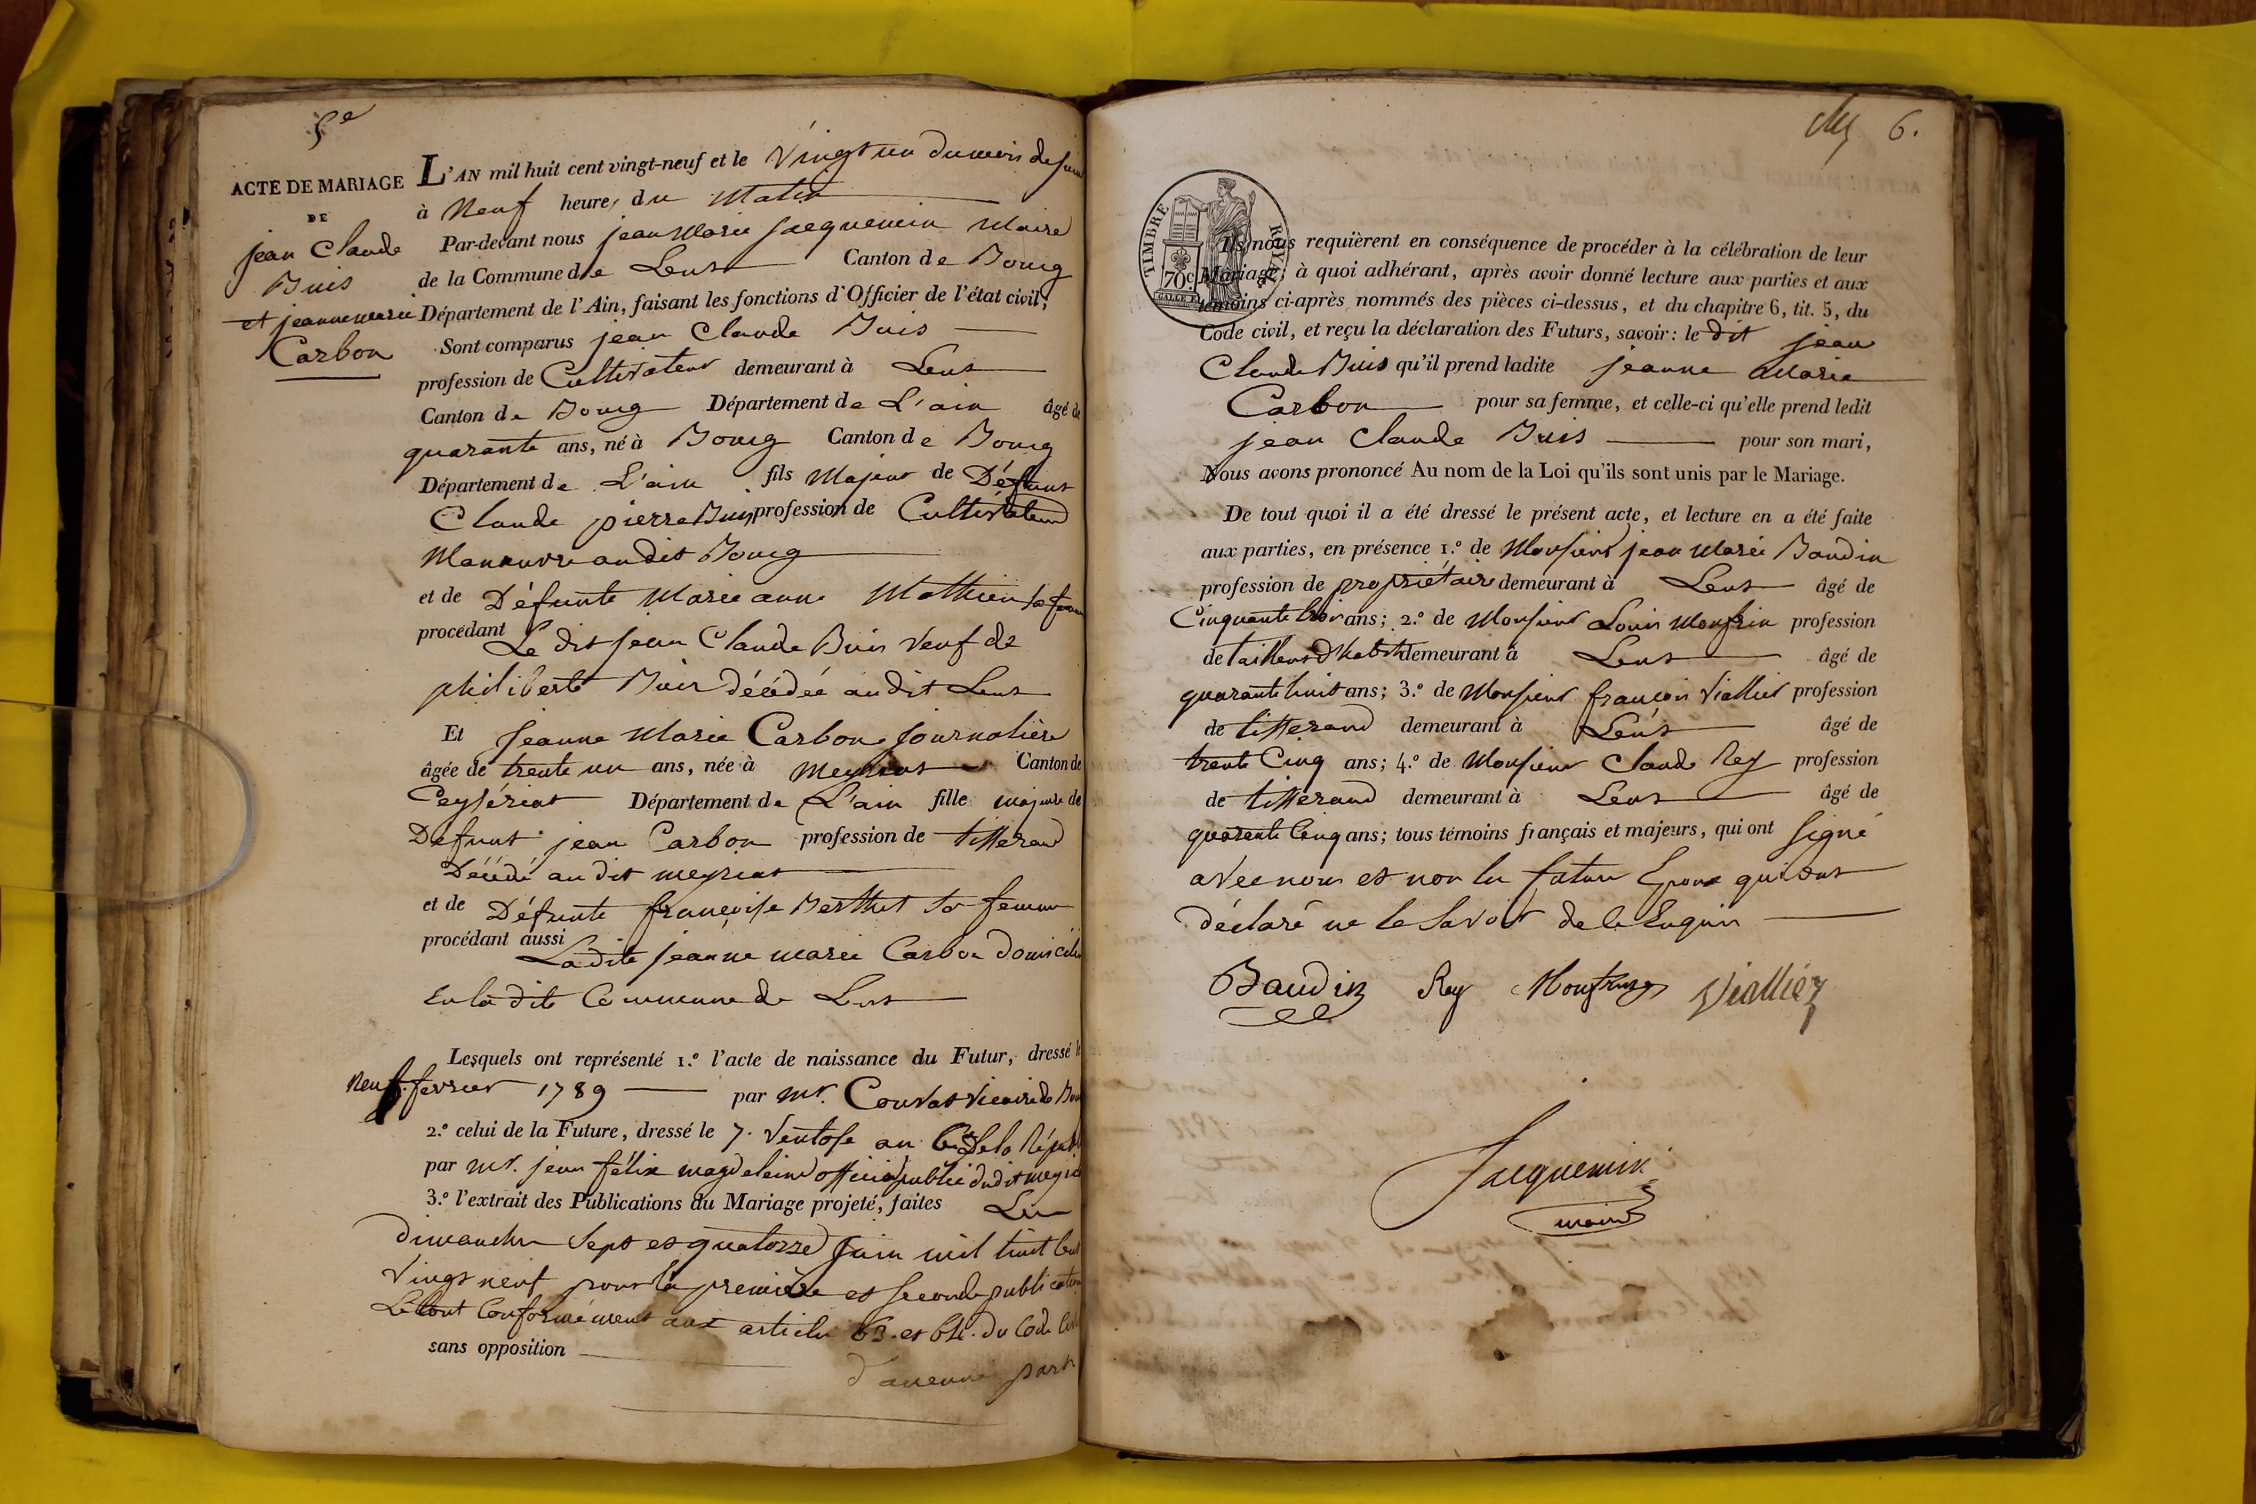 5e
ACTE DE MARIAGE
DE
jean Claude
Buis
et jeanne marie
Carbon
L'AN mil huit cent vingt-neuf et le vingt un du mois de juin
à neuf heures du matin
Par-devant nous jean marie jacquemin maire
de la Commune de Lent Canton de Bourg
Département de l'Ain, faisant les fonctions d'Officier de l'état civil;
Sont comparus jean Claude Buis
profession de Cultivateur demeurant à Lent
Canton de Bourg Département de L'ain âgé de
quarante ans, né à Bourg Canton de Bourg
Département de L'ain fils majeur de Défunt
Claude pierre Buis profession de Cultivateur
manœuvre audit Bourg
et de Défunte marie anne Mathieu sa femme
procédant Le dit jean Claude Buis veuf de
philiberte Buis décédée audit Lent
Et jeanne marie Carbon journalière
âgée de trente un ans, née à meyriat Canton de
Ceyzériat Département de L'ain fille majeure de
Defunt jean Carbon profession de tisserand
Décédé au dit meyriat
et de Défunte françoise Berthet sa femme
procédant aussi Ladite jeanne marie Carbon domicilié
En la dite Commune de Lent
Lesquels ont représenté 1.º l'acte de naissance du Futur, dressé le
neuf fevrier 1789 par mr. Couvat vicaire de
2.º celui de la Future, dressé le 7. ventose an 6 de la Répub
par mr. jean félix magdeleine officier public dudit meyriat
3.º l'extrait des Publications du Mariage projeté, faites Les
dimanches sept et quatorze juin mil huit cent
vingt neuf pour la première et seconde publication
Le tout Conformément aux articles 63. et 64. du Code Civil
sans opposition
d'aucune part
6.
TIMBRE ROYAL
70c
Ils nous requièrent en conséquence de procéder à la célébration de leur
Mariage; à quoi adhérant, après avoir donné lecture aux parties et aux
témoins ci-après nommés des pièces ci-dessus, et du chapitre 6, tit. 5, du
Code civil, et reçu la déclaration des Futurs, savoir: le dit jean
Claude Buis qu'il prend ladite jeanne Marie
Carbon pour sa femme, et celle-ci qu'elle prend ledit
jean Claude Buis pour son mari,
Nous avons prononcé Au nom de la Loi qu'ils sont unis par le Mariage.
De tout quoi il a été dressé le présent acte, et lecture en a été faite
aux parties, en présence 1.º de Monsieur jean Marie Baudin
profession de propriétaire demeurant à Lent âgé de
Cinquante trois ans; 2.º de Monsieur Louis Monfrin profession
de tailleur d'habits demeurant à Lent âgé de
quarante huit ans; 3.º de Monsieur françois Viallier profession
de tisserand demeurant à Lent âgé de
trente Cinq ans; 4.º de Monsieur Claude Rey profession
de tisserand demeurant à Lent âgé de
quarante Cinq ans; tous témoins français et majeurs, qui ont signé
avec nous et non les futurs Epoux qui ont
déclaré ne le savoir de ce Enquis
Baudin Rey Viallier
Jacquemin
maire